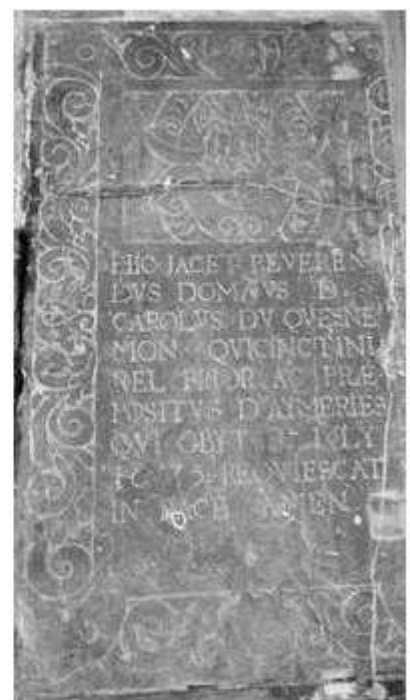 HIC JACET REVEREN
DVS DOMNVS D
CAROLVS DV QVESNE
MON
PRIOR AC PRÆ
POSITVS D'AIMERIES
QVI OBYT IVLY
REQVIESCAT
IN PACE AMEN